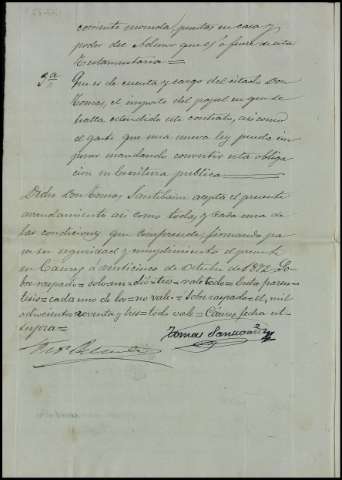 corriente moneda, puestas en casa y
poder del Señor que es ó fuere de esta
Testamentaria
5ª Que es de cuenta y cargo del citado Don
Tomas, el importe del papel en que se
halla estendido este contrato, asi como
el gasto que una nueva ley pueda im
poner mandando convertir esta obliga
cion en Escritura publica
Dicho Don Tomas Santibañez acepta el presente
arrendamiento asi como todas y cada una de
las condiciones que comprende firmando pa
ra su seguridad y cumplimiento el presente
en á veinticinco de Octubre de 1892
rayado = = vale todo = Entre paren
tesis = cada uno de los = no vale = Sobre rayado = el mil
ochocientos noventa y tres = todo vale = fecha ut
supra =
Tomas Santibañez